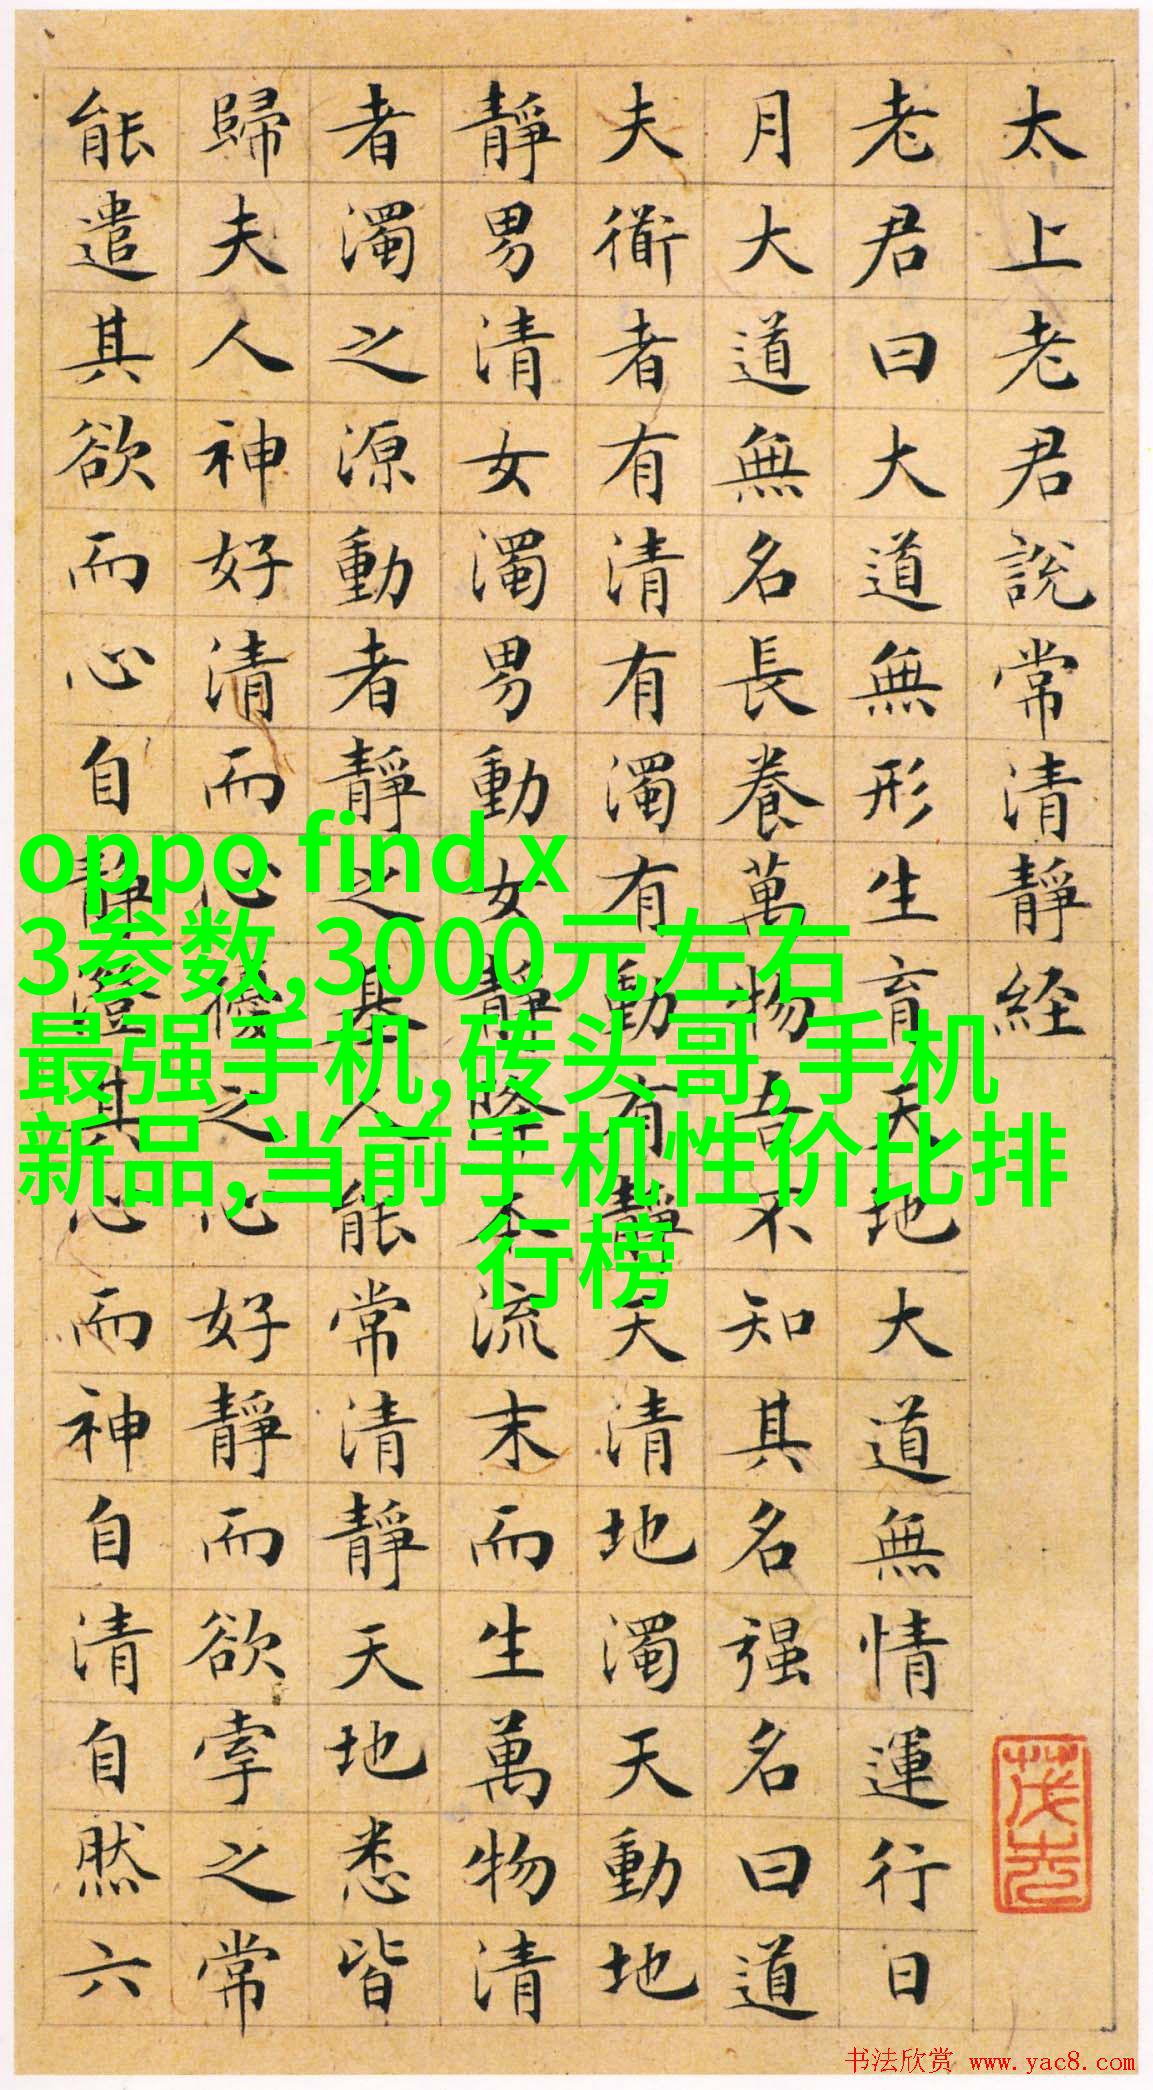 太上老君説常清靜経
老君曰大道無形生育天地大道無情運行日
月大道無名長養萬物吾不知其名强名曰道
夫衜者有清有濁有動有靜天清地濁天動地
靜男清女濁男動女靜降本流末而生萬物清
者濁之源動者靜之基人能常清靜天地悉皆
歸夫人神好清而心擾之心好靜而欲牽之常
能遣其欲而心自靜澄其心而神自清自然六
oppo find x
3参数,3000元左右
最强手机,砖头哥,手机
新品,当前手机性价比排
行榜
书法欣赏 www.yac8.com